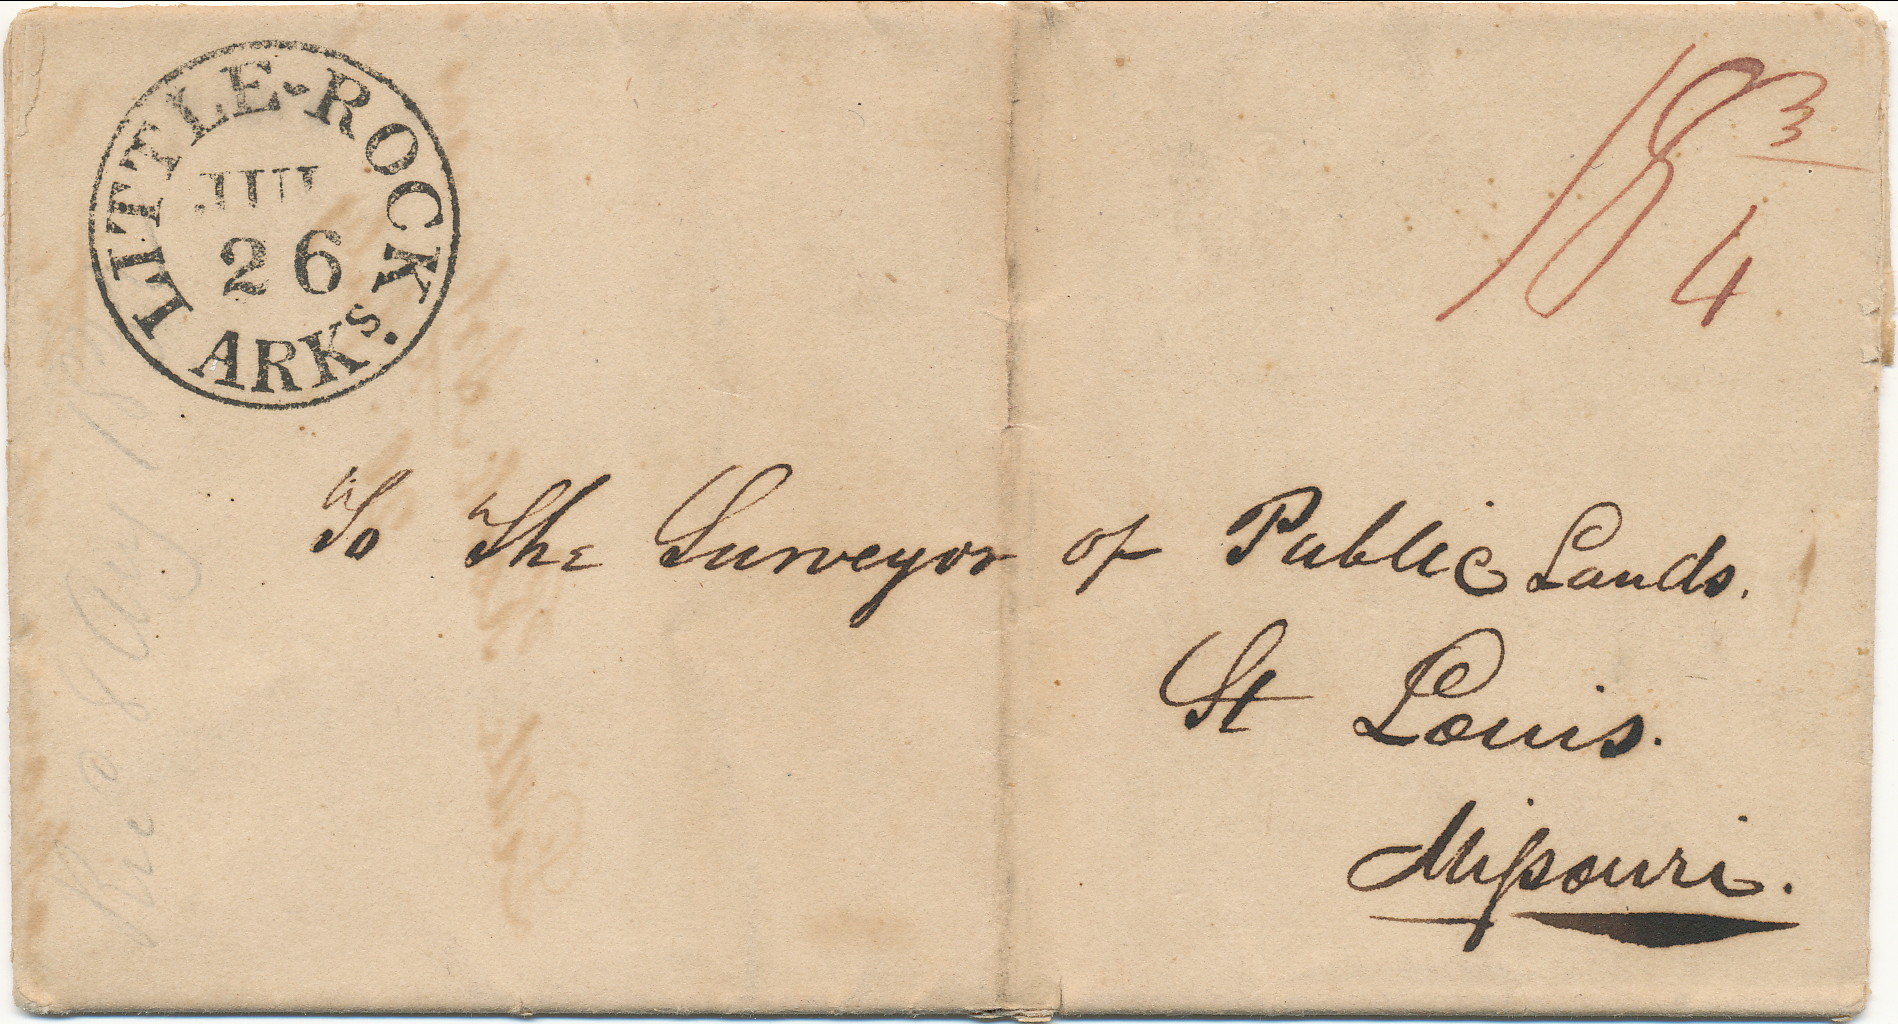 LITTLE-ROCK
JUL
26
ARKs.
18 3/4
To The Surveyor of Public Lands.
St Louis.
Missouri.